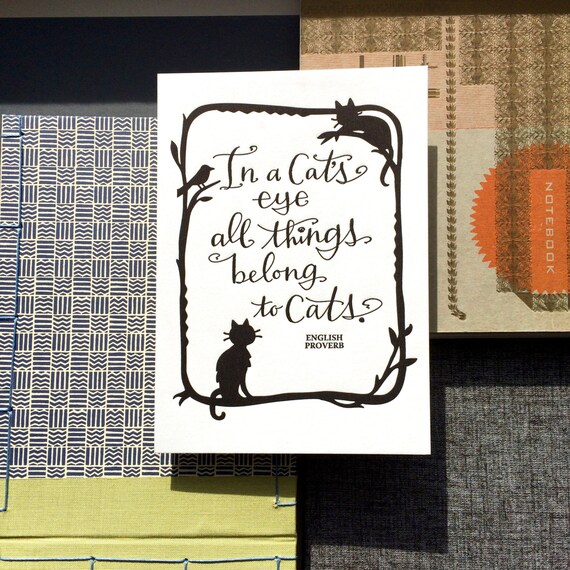 In a Cat's
eye
all things
belong
to Cats.
ENGLISH
PROVERB
NOTEBOOK